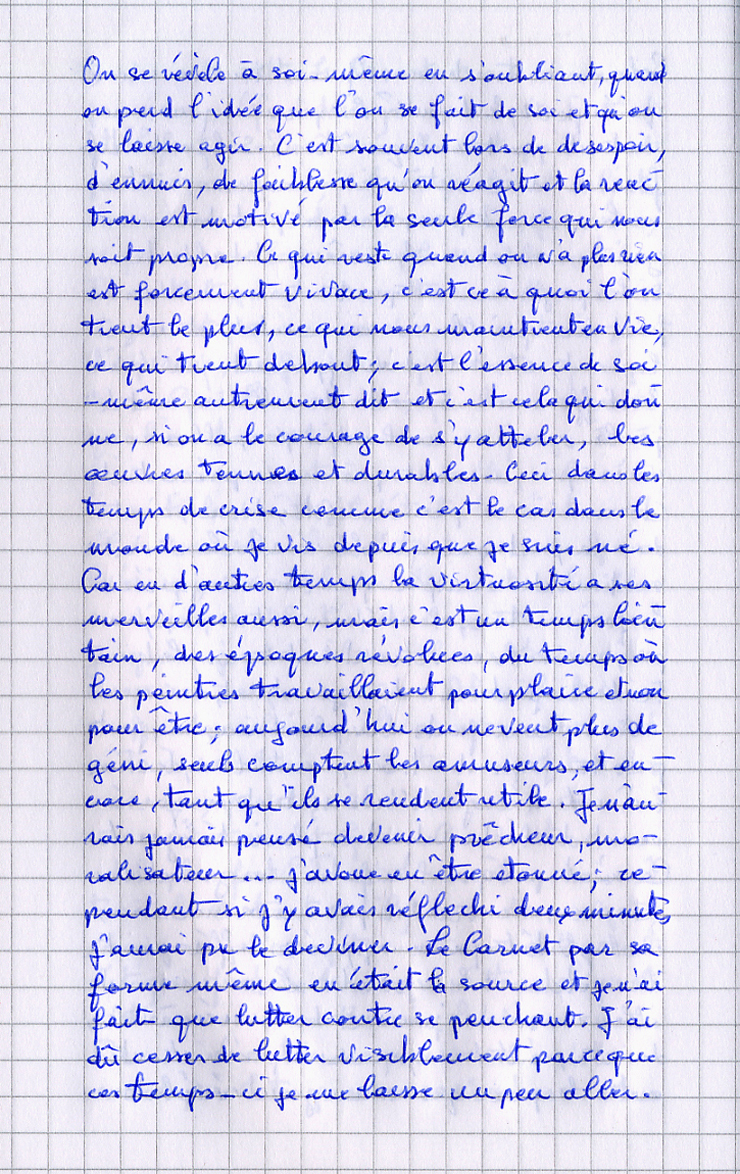 On se révèle à soi-même en s'oubliant, quand
on perd l'idée que l'on se fait de soi et qu'on
se laisse agir. C'est souvent lors de desespoir,
d'ennuis, de faiblesse qu'on réagit et la reac
tion est motivé par la seule force qui nous
soit propre. Ce qui reste quand on n'a plus rien
est forcement vivace, c'est ce à quoi l'on
tient le plus, ce qui nous maintient en vie,
ce qui tient debout; c'est l'essence de soi
-même autrement dit et c'est cela qui don
ne, si on a le courage de s'y atteler, les
œuvres tennes et durables. Ceci dans les
temps de crise comme c'est le cas dans le
monde où je vis depuis que je suis né.
Car en d'autres temps la virtuosité a ses
merveilles aussi, mais c'est un temps loin
tain, des époques révolues, du temps où
les peintres travaillaient pour plaire et non
pour être; aujourd'hui on ne veut plus de
géni, seuls comptent les amuseurs, et en-
core, tant qu'ils se rendent utile. Je n'au-
rais jamais pensé devenir prêcheur, mo-
ralisateur... j'avoue en être etonné; ce-
pendant si j'y avais réflechi deux minutes
j'aurai pu le deviner. Le Carnet par sa
forme même en était la source et je n'ai
fait que lutter contre se penchant. J'ai
dû cesser de lutter visiblement parce que
ces temps-ci je me laisse un peu aller.